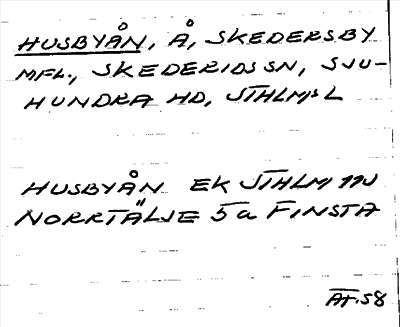 HUSBYÅN, Å, SKEDERSBY
MFL., SKEDERIDS SN, SJU-
HUNDRA HD, STHLMS L
HUSBYÅN EK STHLM 11J
NORRTÄLJE 5a FINSTA
AT.58